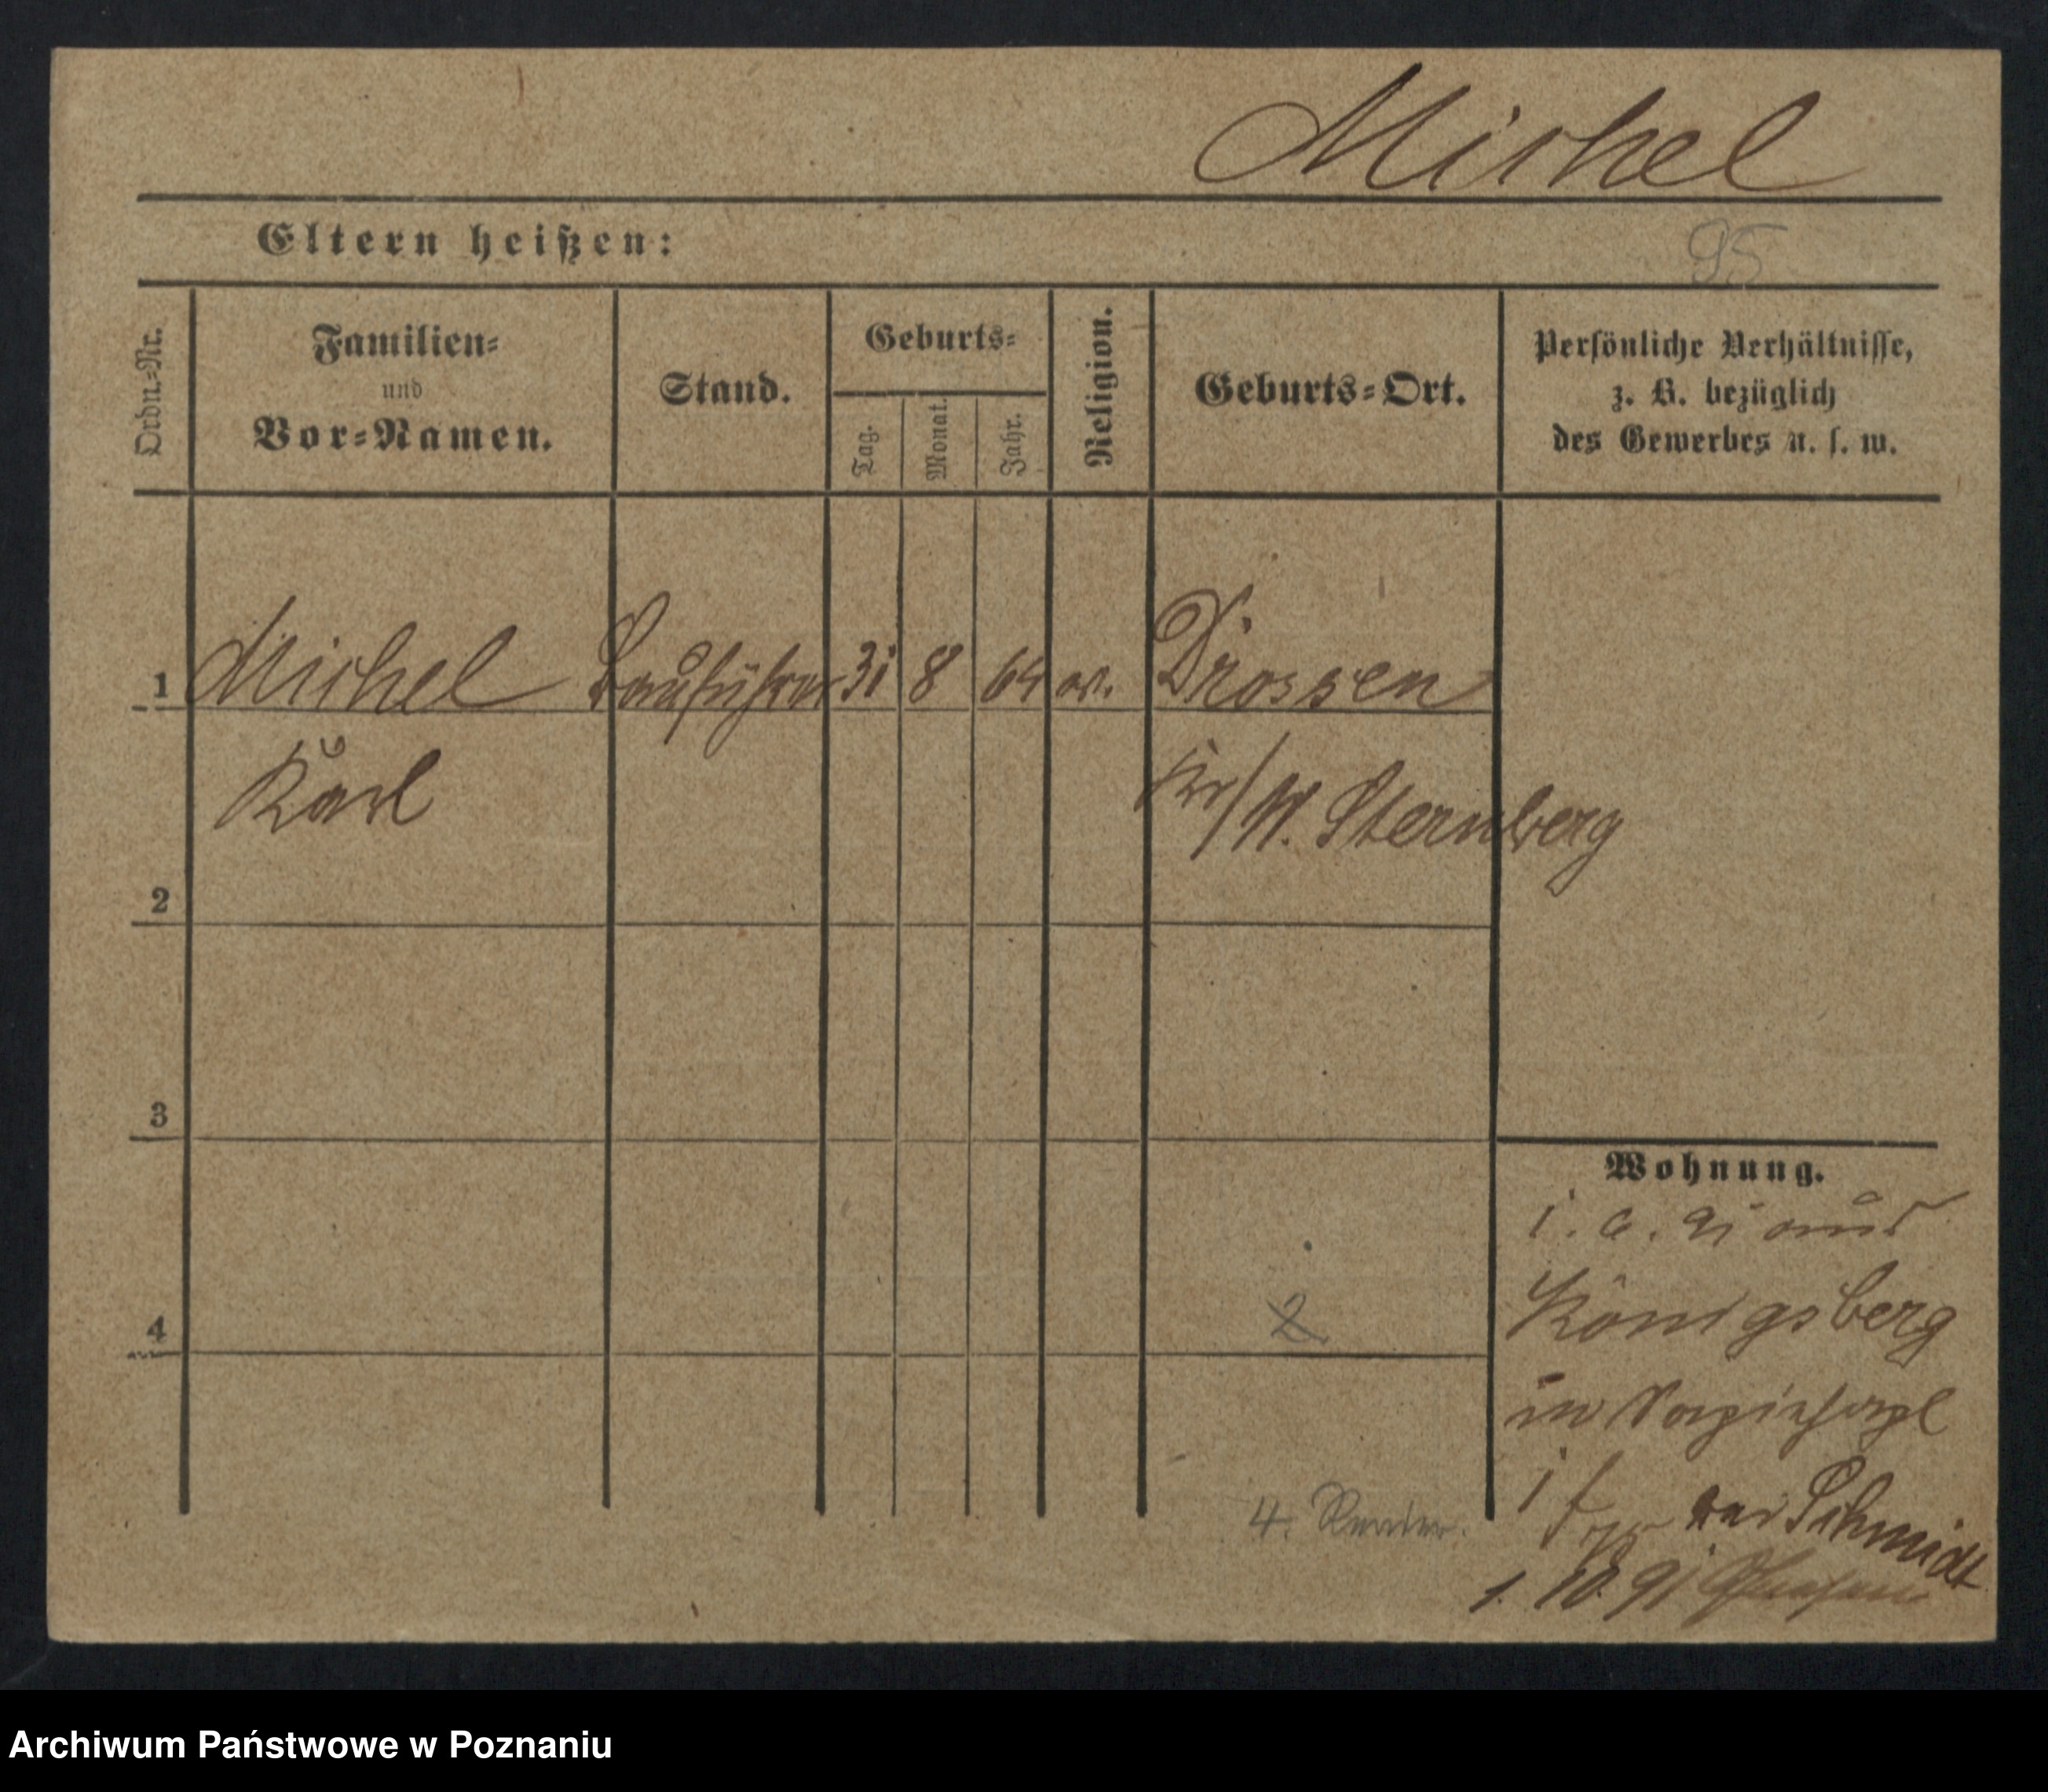 Michel
Eltern heißen:
95
Ordn.-Nr.
Familien-
und
Vor-Namen.
Stand.
Geburts-
Tag.
Monat.
Jahr.
Religion.
Geburts-Ort.
Persönliche Verhältnisse,
z. B. bezüglich
des Gewerbes u. s. w.
1 Michel Bauführer 31 8 64 ev. Drossen
Karl Kr/W. Sternberg
2
3
4
2
Wohnung.
1. 6. 91 aus
Königsberg
in
bei Schmidt
1. 10. 91
4.
Archiwum Państwowe w Poznaniu